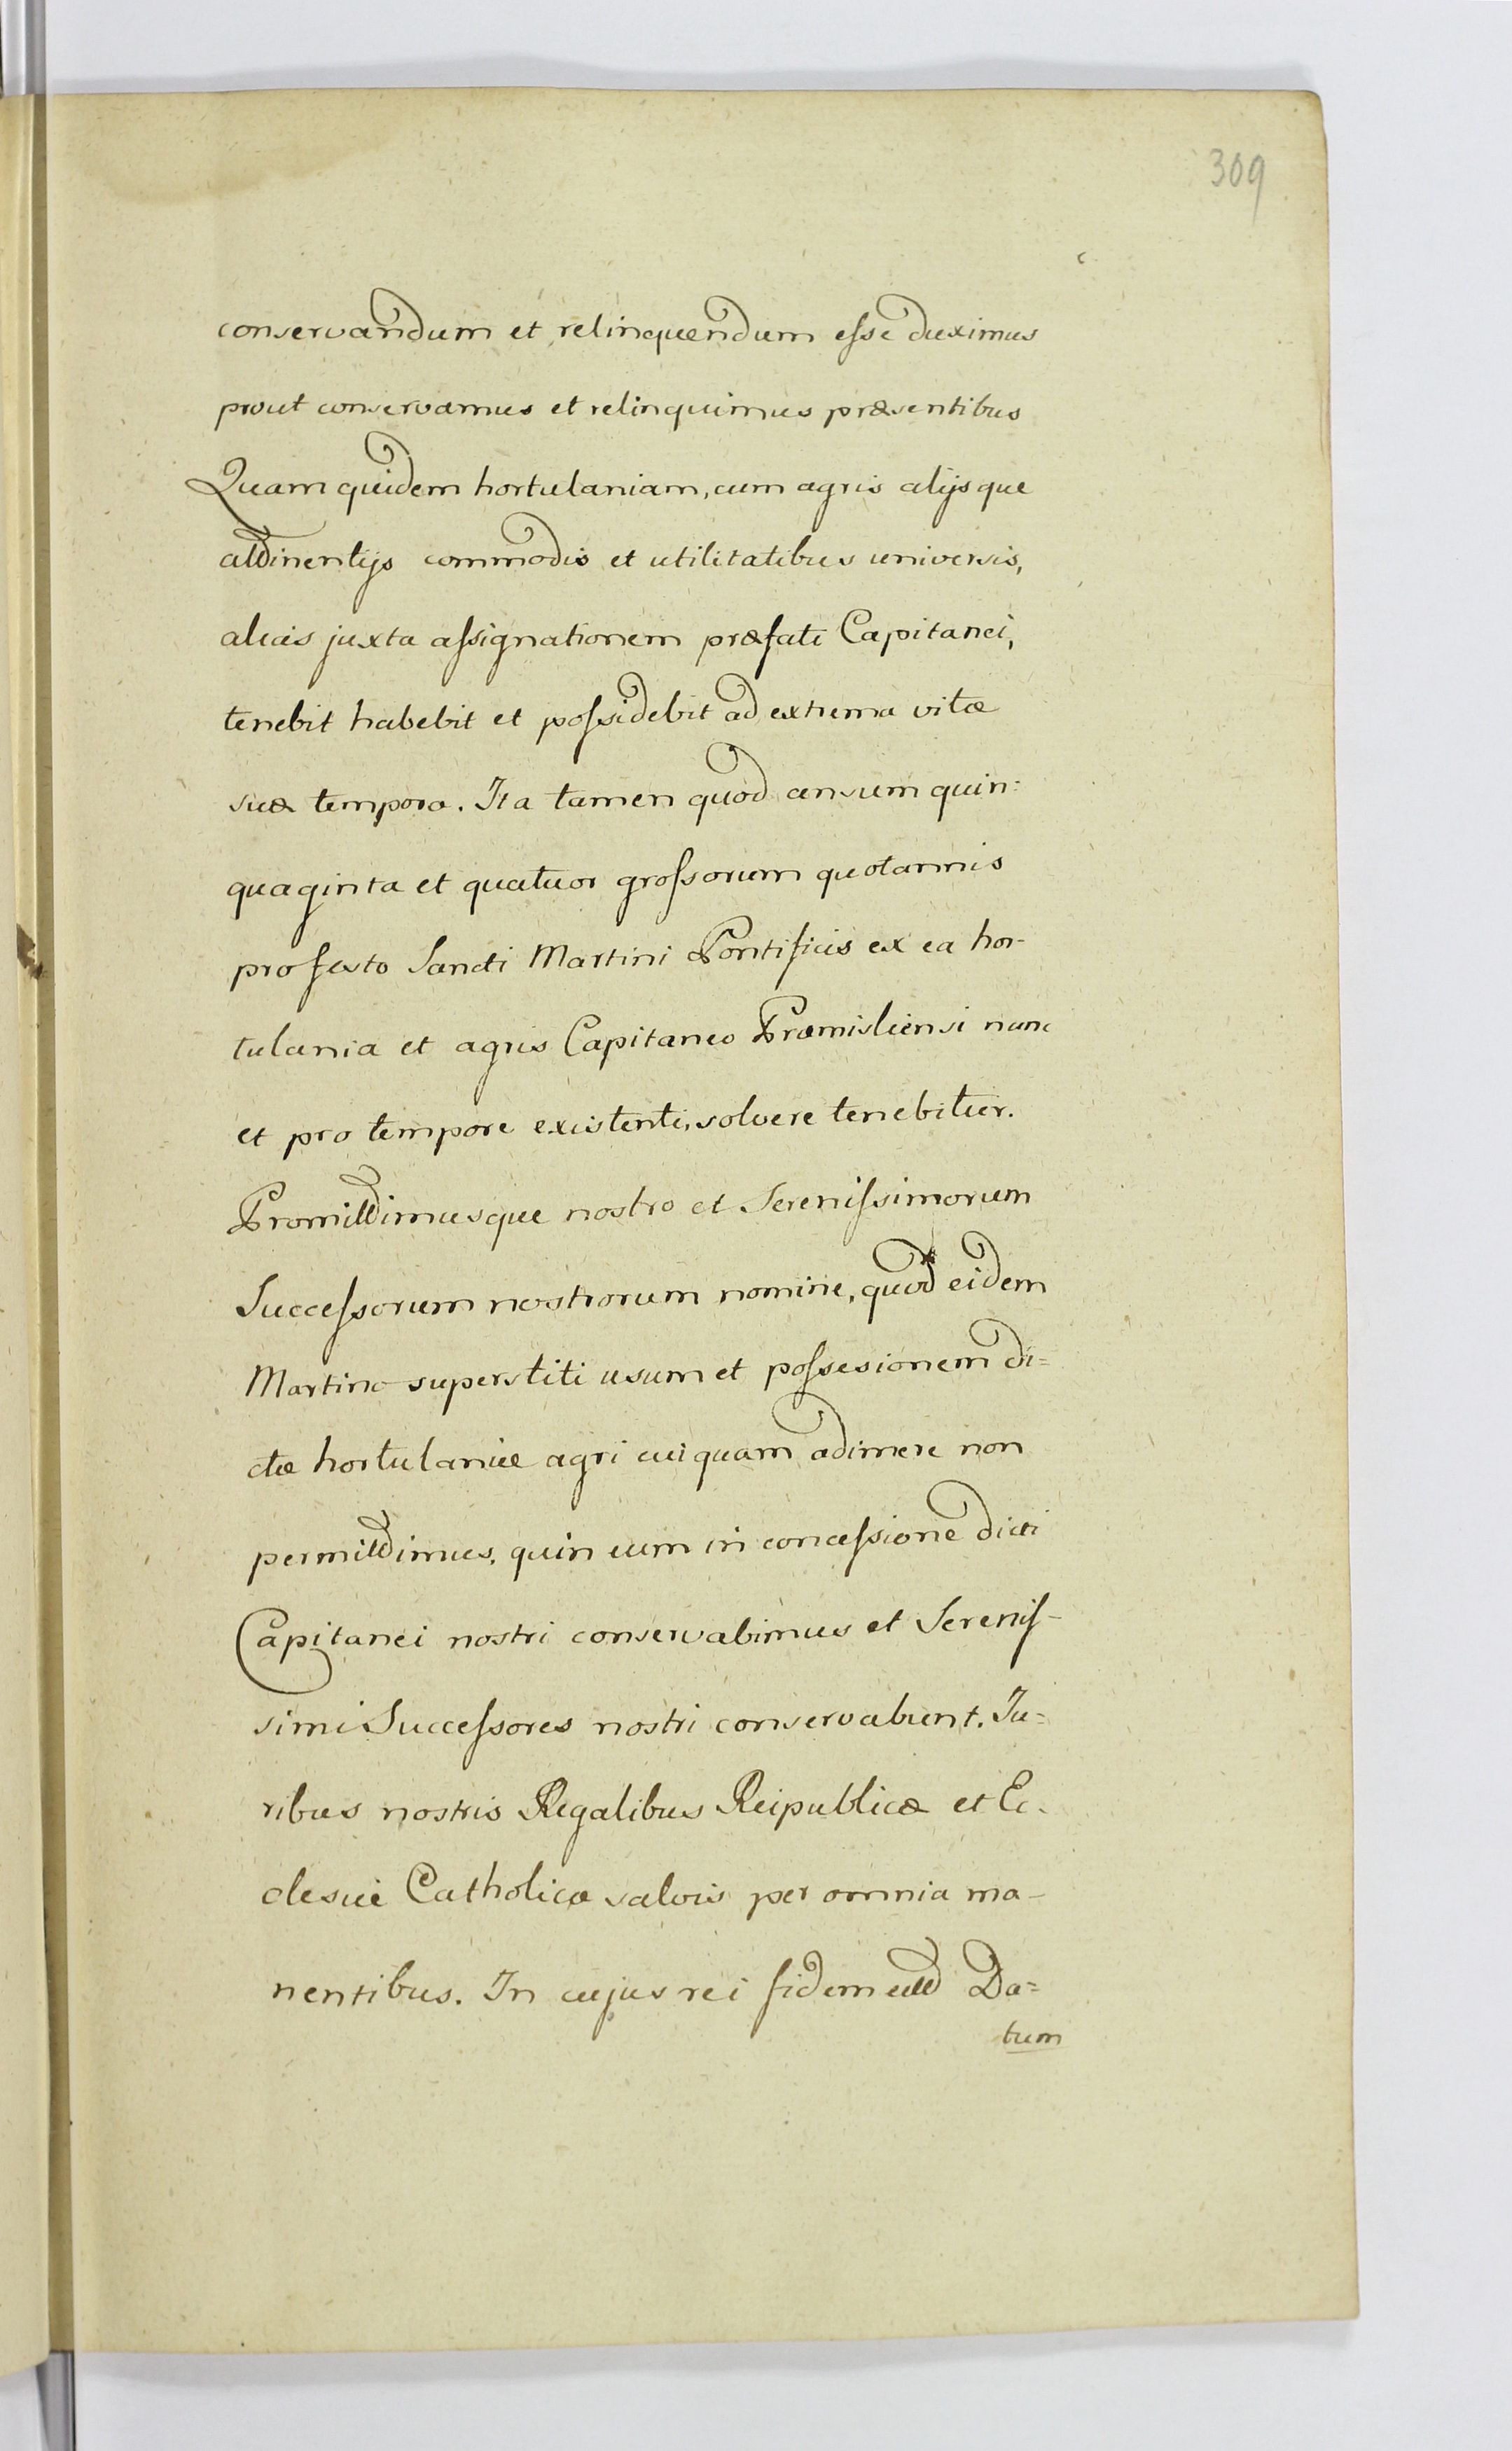 309
conservandum et relinquendum eſse duximus
prout conservamus et relinquimus præsentibus
Quam quidem hortulaniam, cum agris alijsque
attinentijs commodis et utilitatibus universis,
aliàs juxta aſsignationem præfati Capitanei,
tenebit habebit et poſsidebit ad extrema vitæ
suæ tempora. Ita tamen quod censum quin=
quaginta et quatuor groſsorum quotannis
pro festo Sancti Martini Pontificis ex ea hor-
tulania et agris Capitaneo Præmisliensi nunc
et pro tempore existenti, solvere tenebitur.
Promittimusque nostro et Sereniſsimorum
Succeſsorum nostrorum nomine, quod eidem
Martino superstiti usum et poſsesionem di=
ctæ hortulaniæ agri cuiquam adimere non
permittimus, quin eum in conceſsione dicti
Capitanei nostri conservabimus et Sereniſ-
simi Succeſsores nostri conservabunt. Ju=
ribus nostris Regalibus Reipublicæ et Ec-
clesiæ Catholicæ salvis per omnia ma-
nentibus. In cujus rei fidem Da=
tum